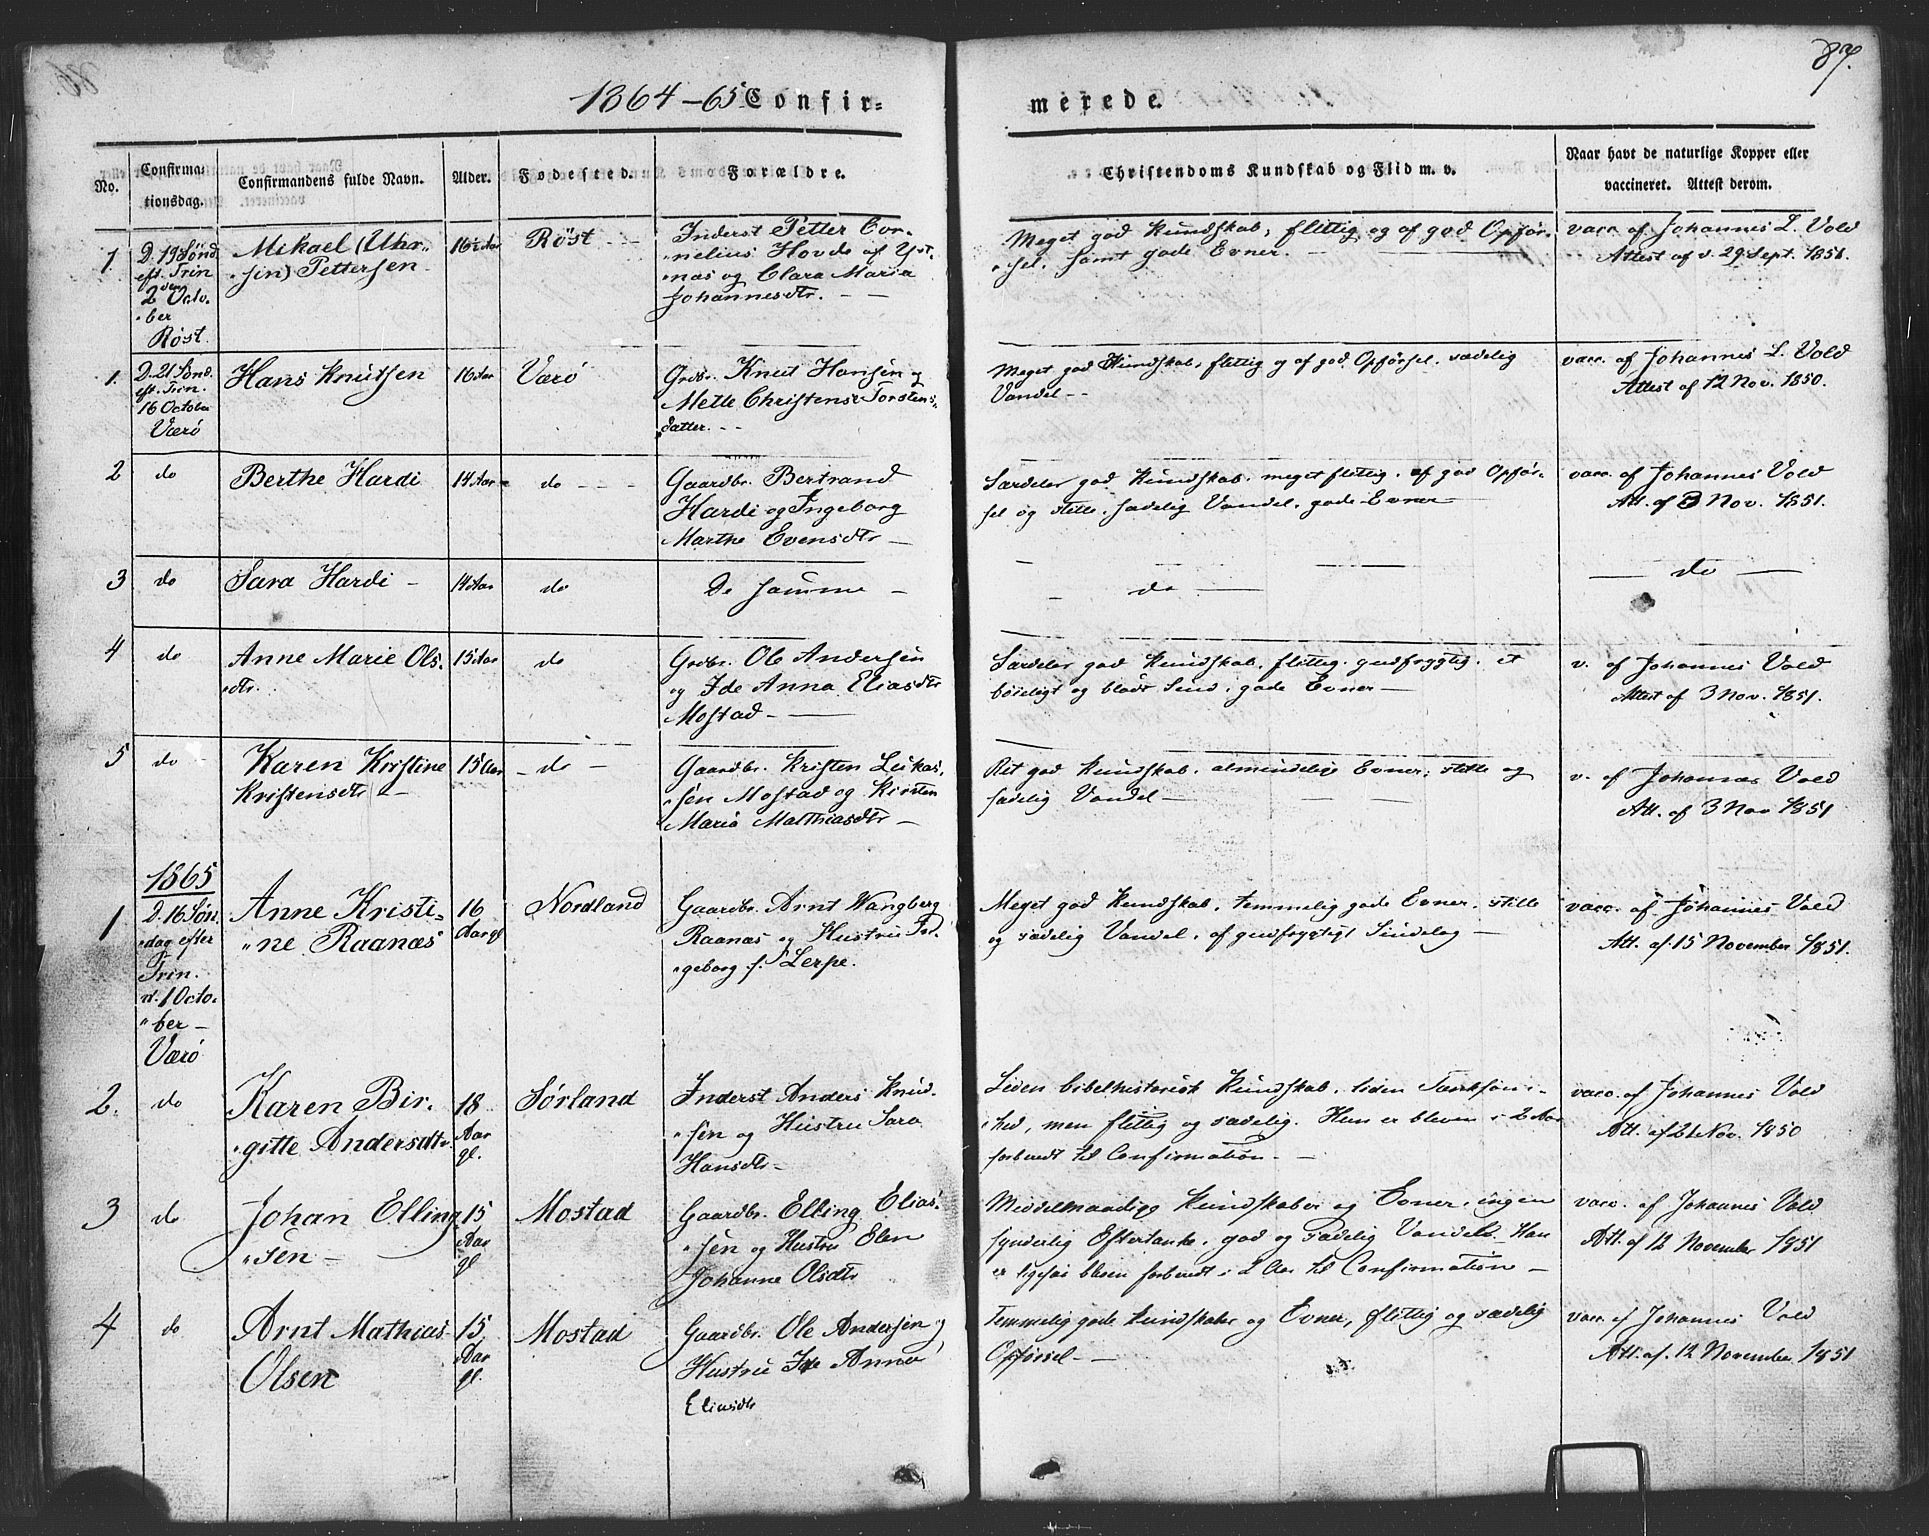 87.
1864-65 Confir=
merede.
No.
Confirma=
tionsdag.
Confirmandens fulde Navn.
Alder.
Fodested.
Forældre.
Christendoms Kundskab og Flid m. v.
Naar havt de naturlige Kopper eller
vaccineret. Attest derom.
1.
D. 19 Sønd.
eft. Trin
den
2 Octo-
"ber
Røst.
Mikael (Uhr-
"sin) Pettersen
16½ Aar
Røst
Inderst Petter Cor-
"nelius Hovde af Yst-
næs og Clara Maria
Johannesdtr.
Meget god Kundskab, flittig og af god Opfør-
"sel, samt gode Evner.
vacc. af Johannes L. Vold
Attest af d. 29 Sept. 1851.
1.
D. 21 Sønd.
eft. Trin.
16 October
Værø
Hans Knutsen
16 Aar
Værø
Grdbr. Knut Hansen og
Mette Christense Torstens-
"datter.
Meget god Kundskab, flittig og af god Opførsel, sædelig
Vandel
vacc. af Johannes L. Vold
Attest af 12 Nov. 1850.
2
do
Berthe Hardi
14 Aar
do
Gaardbr. Bertrand
Hardi og Ingeborg
Marthe Evensdtr
Særdeles god Kundskab, meget flittig, af god Opfør-
sel og stille, sædelig Vandel, gode Evner
vacc. af Johannes Vold
Att. af 3 Nov. 1851.
3
do
Sara Hardi
14 Aar
do
De samme
do
do
4
do
Anne Marie Ols-
"dtr.
15 Aar
do
Grdbr. Ole Andersen
og Ide Anna Eliasdtr
Mostad
Særdeles god Kundskab, flittig, gudfrygtig, et
bøieligt og blødt Sind, gode Evner
v. af Johannes Vold
Attest af 3 Nov. 1851.
5
do
Karen Kristine
Kristensdtr
15 Aar
do
Gaardbr. Kristen Lukas-
"sen Mostad og Kirsten
Maria Mathiasdtr
Ret god Kundskab, almindelige Evner, stille og
sædelig Vandel
v. af Johannes Vold
Att. af 3 Nov 1851
1865
1
D. 16 Søn-
"dag efter
Trin.
d. 1 Octo-
"ber
Værø
Anne Kristi-
"ne Raanæs
16
Aar gl
Nordland
Gaardbr. Arnt Wangberg
Raanæs og Hustru In-
"geborg f. Lerpe.
Meget god Kundskab, temmelig gode Evner, stille
og sædelig Vandel, af gudfrygtigt Sindelag
vacc. af Johannes Vold
Att. af 15 November 1851.
2.
do
Karen Bir-
"gitte Andersdtr
18
Aar
gl.
Sørland
Inderst Anders Knud-
"sen og Hustru Sara
Hansdtr
Liden bibelhistorisk Kundskab, liden Tænksom-
"hed, men flittig og sædelig. Hun er bleven i 2 Aar
forberedt til Confirmation
vacc. af Johannes Vold
Att. af 21 Nov. 1850
3
do
Johan Elling
"sen
15
Aar
gl
Mostad
Gaardbr. Elling Elias-
"sen og Hustru Elen
Johanne Olsdtr
Middelmaadige Kundskaber og Evner, ingen
synderlig Eftertanke, god og sædelig Vandel. Han
er ligesaa bleven forberedt i 2 Aar til Confirmation
vacc. af Johannes Vold
Att. af 12 November 1851
4
do
Arnt Mathias
Olsen
15
Aar
gl.
Mostad
Gaardbr. Ole Andersen og
Hustru Ide Anna
Eliasdtr
Temmelig gode Kundskaber og Evner, flittig og sædelig
Opførsel
vacc. af Johannes Vold
Att. af. 12 November 1851